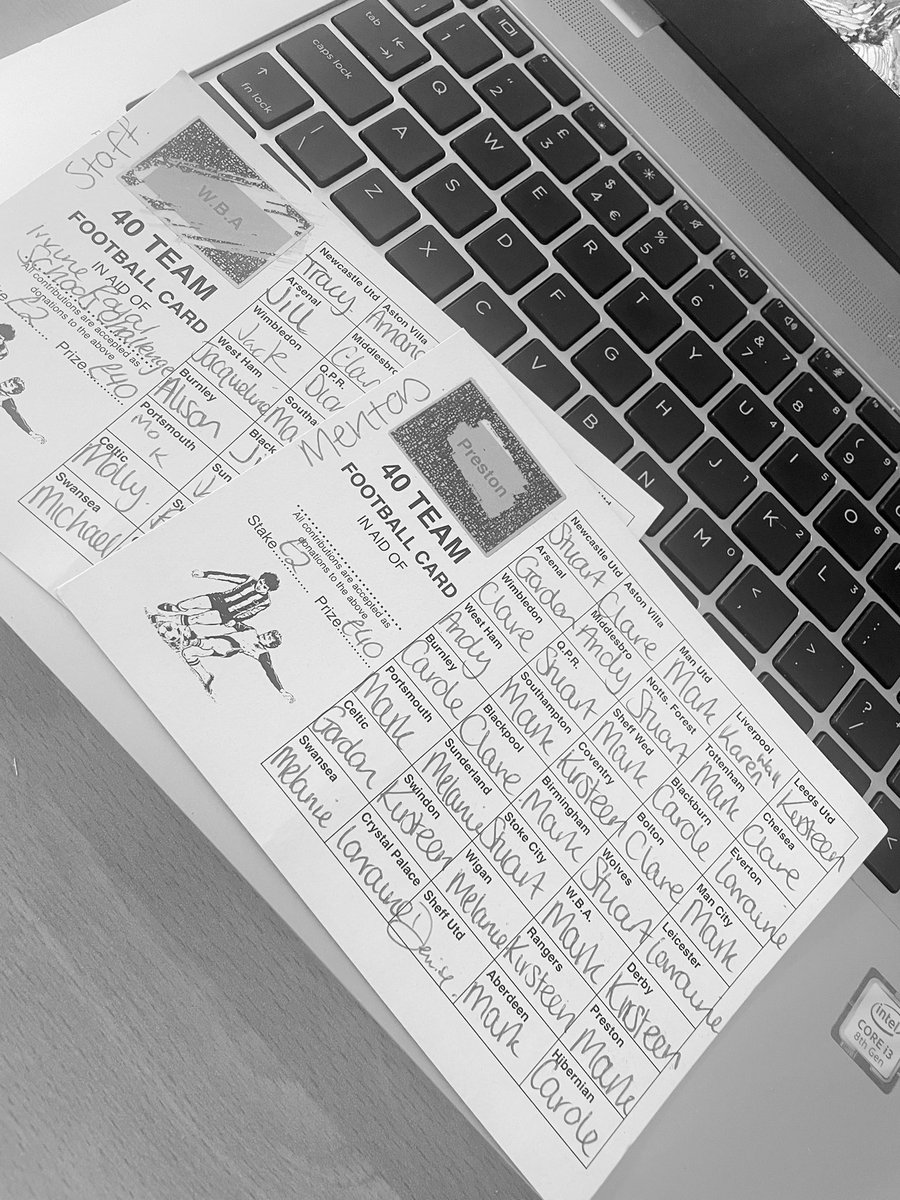 Staff.
W.B.A
40 TEAM
FOOTBALL CARD
IN AID OF
Irvine Royal
School
All contributions are accepted as
donations to the above
£2 Prize £40
Newcastle Utd Aston Villa
Tracy.
Arsenal Middlesbro
Jill
Wimbledon Q.P.R.
Jack
West Ham
Jacqueline
Burnley
Alison
Portsmouth
Mo K
Celtic
Molly.
Swansea
Michael
Mentors
Preston
40 TEAM
FOOTBALL CARD
IN AID OF
All contributions are accepted as
donations to the above
Stake £2 Prize £40
Newcastle Utd Aston Villa Man Utd Liverpool Leeds Utd
Stuart Clare Mark Karen Wall Kirsteen
Arsenal Middlesbro Notts. Forest Tottenham Chelsea
Gordon Andy Stuart Mark Clare
Wimbledon Q.P.R. Sheff Wed Blackburn Everton
Clare Stuart Mark Carole Lorraine
West Ham Southampton Coventry Bolton Man City
Andy Mark Kirsteen Clare Mark
Burnley Blackpool Birmingham Wolves Leicester
Carole Clare Mark Stuart Lorraine
Portsmouth Sunderland Stoke City W.B.A. Derby
Mark Melanie Stuart Mark Kirsteen
Celtic Swindon Wigan Rangers Preston
Gordon Kirsteen Melanie Kirsteen Mark
Swansea Crystal Palace Sheff Utd Aberdeen Hibernian
Melanie Lorraine Denise. Mark Carole
tab
caps lock
fn lock
Q W E R T Y U I O
A S D F G H J K L
Z X C V B N M
intel
CORE i3
8th Gen